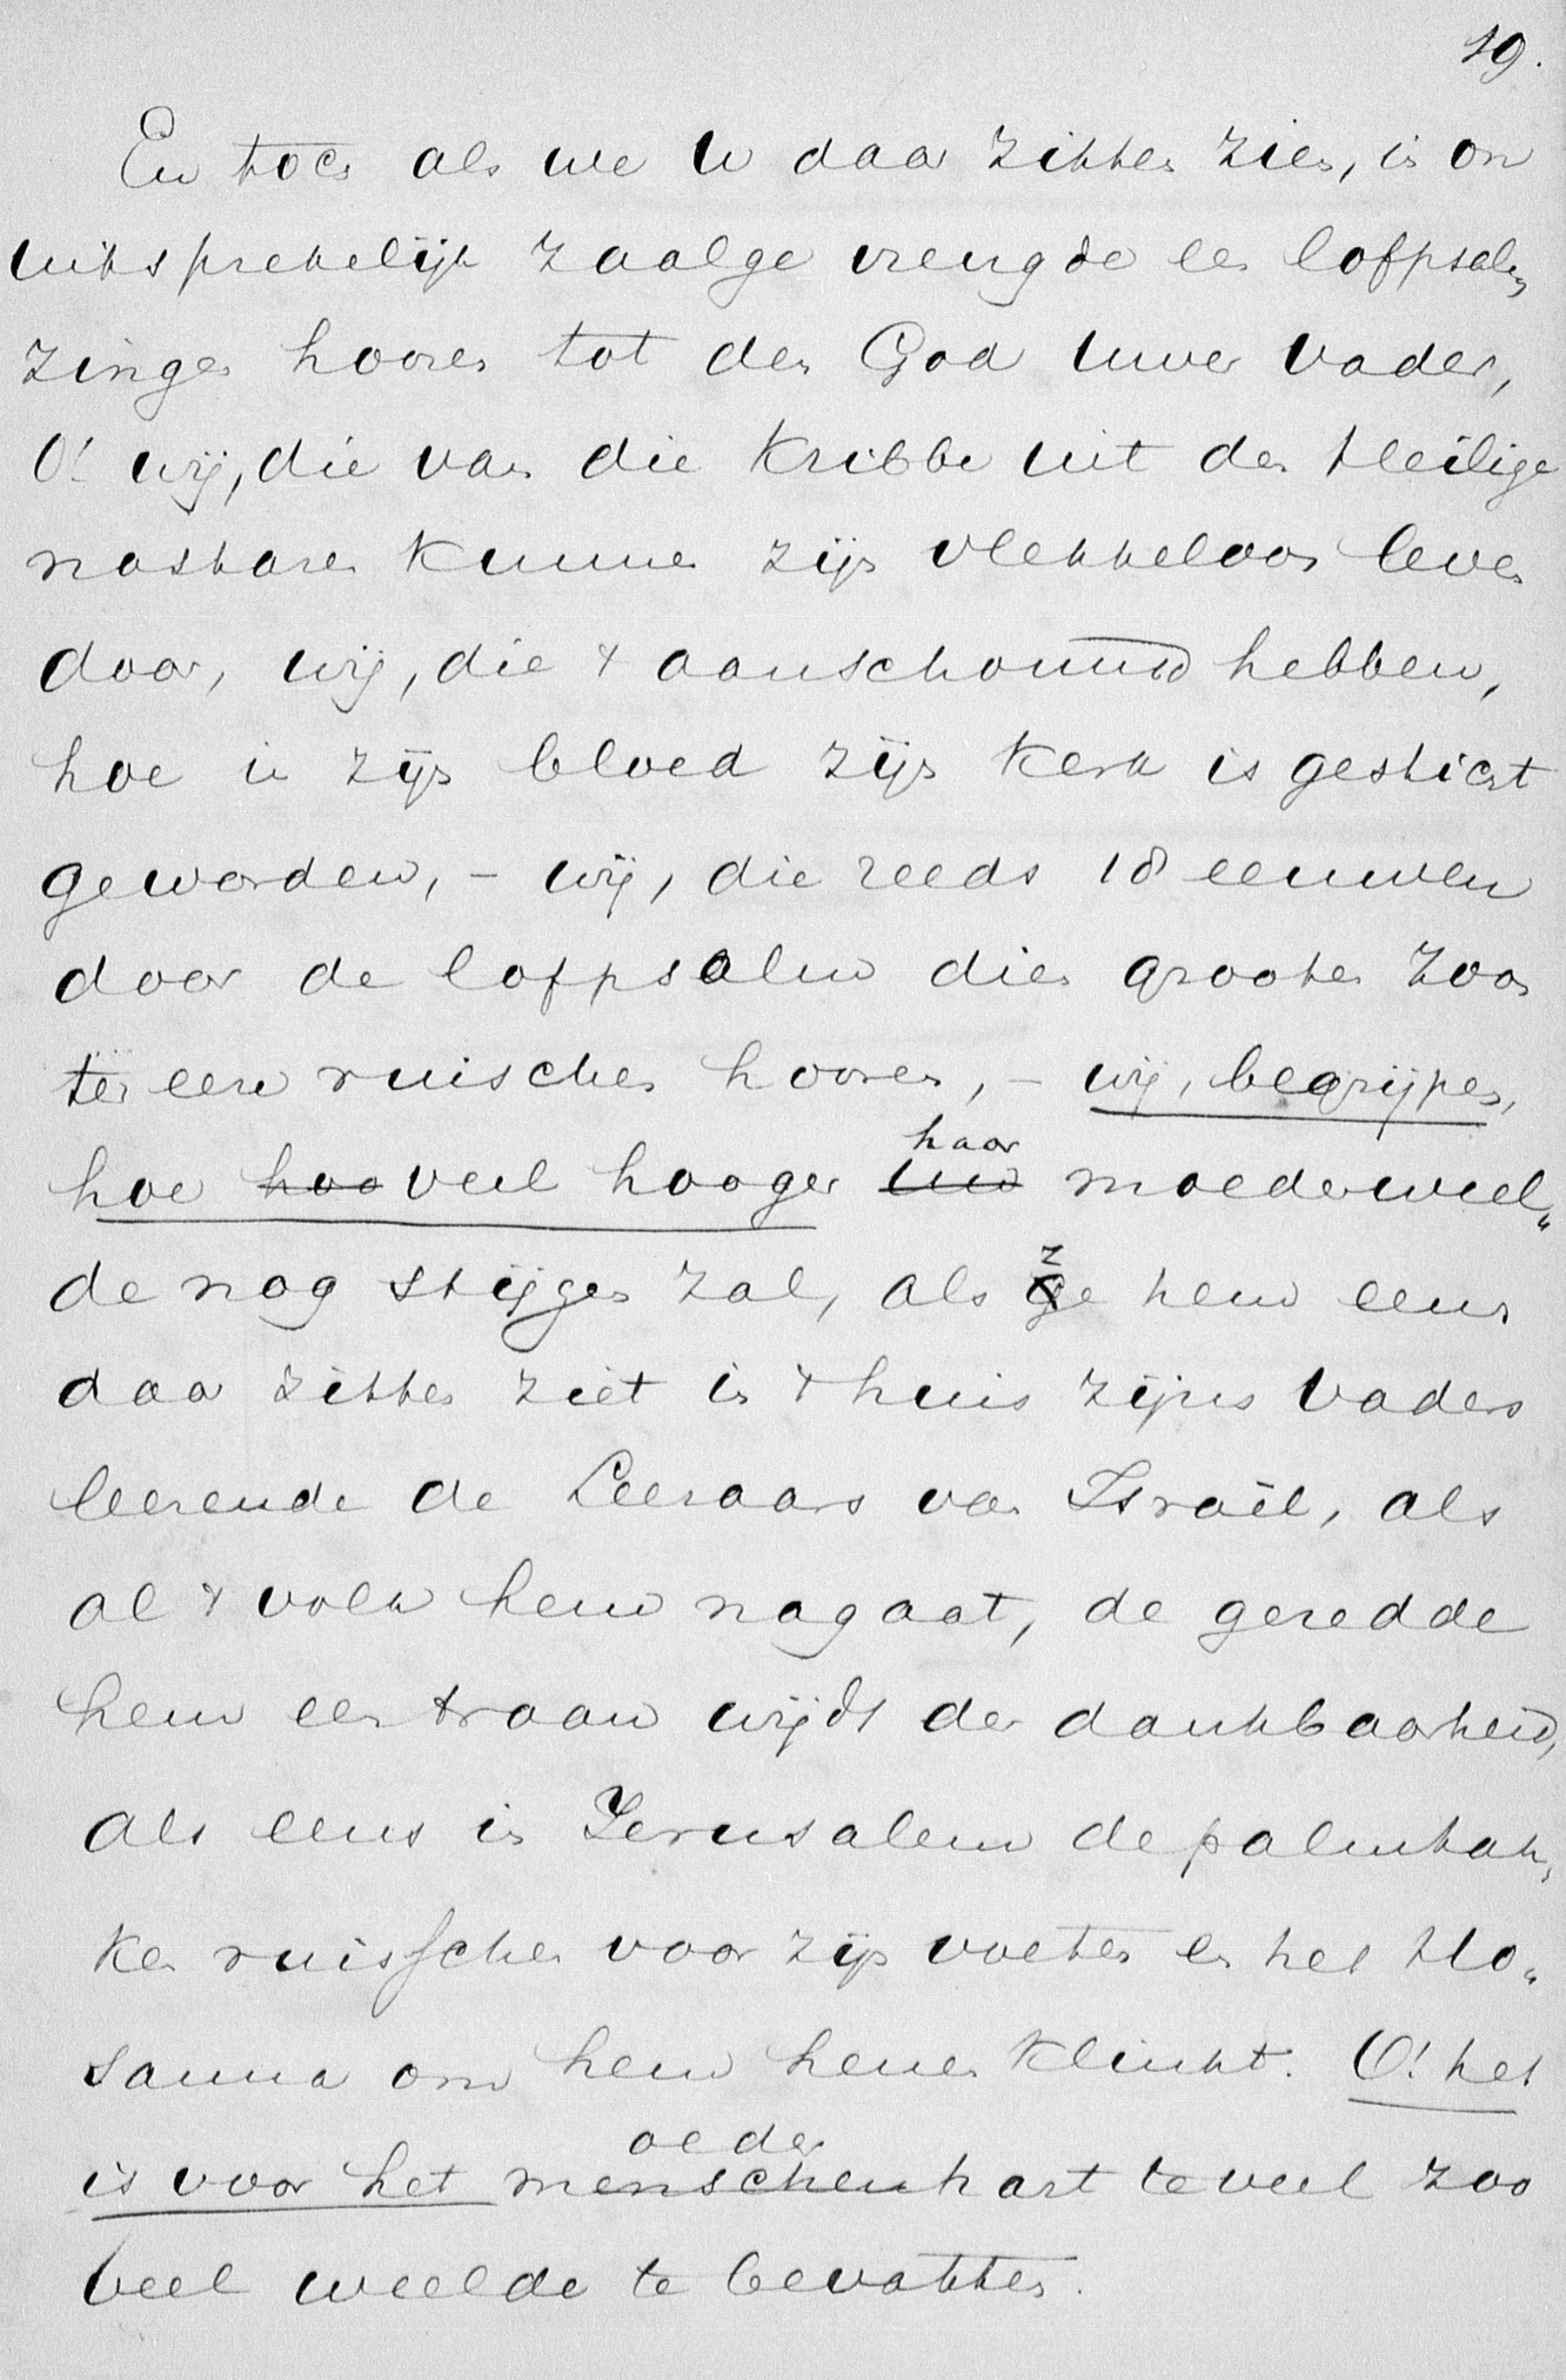 19.
En toch als we U daar zitten zien, in on
uitsprekelijk zaalge vreugde een lofpsalm
zingen hooren tot den God uwer vaderen,
O! wij, die van die Kribbe uit den Heilige
nastaren kunnen zijn vlekkeloos leven
door, wij, die 't aanschouwd hebben,
hoe in zijn bloed zijn Kerk is gesticht
geworden, – wij, die reeds 18 eeuwen
door de lofpsalm dien grooten Zoon
ter eere ruischen hooren, – wij, begrijpen,
haar
hoe hoo veel hooger uw moederweel„
z
de nog stijgen zal, als ge hem eens
daar zitten ziet in 't huis zijns Vaders
leerende de Leeraars van Israël, als
al 't volk hem nagaat, de geredde
hem een traan wijdt der dankbaarheid,
als eens in Jerusalem de palmtak„
ken ruisschen voor zijn voeten en het Ho„
sanna om hem henen klinkt. O! het
oeder
is voor het menschenhart te veel zoo
veel weelde te bevatten.